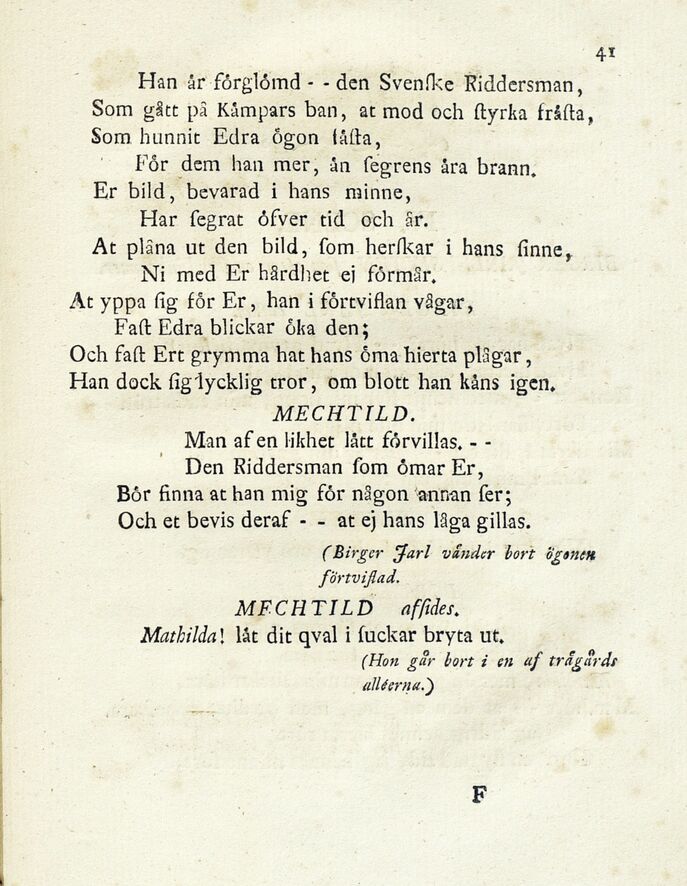 41
Han år förglömd - - den Svenſke Riddersman,
Som gått på Kåmpars ban, at mod och ſtyrka fråſta,
Som hunnit Edra ögon fåſta,
För dem han mer, ån ſegrens åra brann.
Er bild, bevarad i hans minne,
Har ſegrat öfver tid och år.
At plåna ut den bild, ſom herſkar i hans ſinne,
Ni med Er hårdhet ej förmår.
At yppa ſig för Er, han i förtviflan vågar,
Faſt Edra blickar öka den;
Och faſt Ert grymma hat hans öma hierta plågar,
Han dock ſig lycklig tror, om blott han kåns igen.
MECHTILD.
Man af en likhet lått förvillas. - -
Den Riddersman ſom ömar Er,
Bör finna at han mig för någon annan ſer;
Och et bevis deraf - - at ej hans låga gillas.
(Birger Jarl vånder bort ögonen
förtviflad.
MECHTILD affides.
Mathilda! låt dit qval i ſuckar bryta ut.
(Hon går bort i en af trågårds
alléerna.)
F